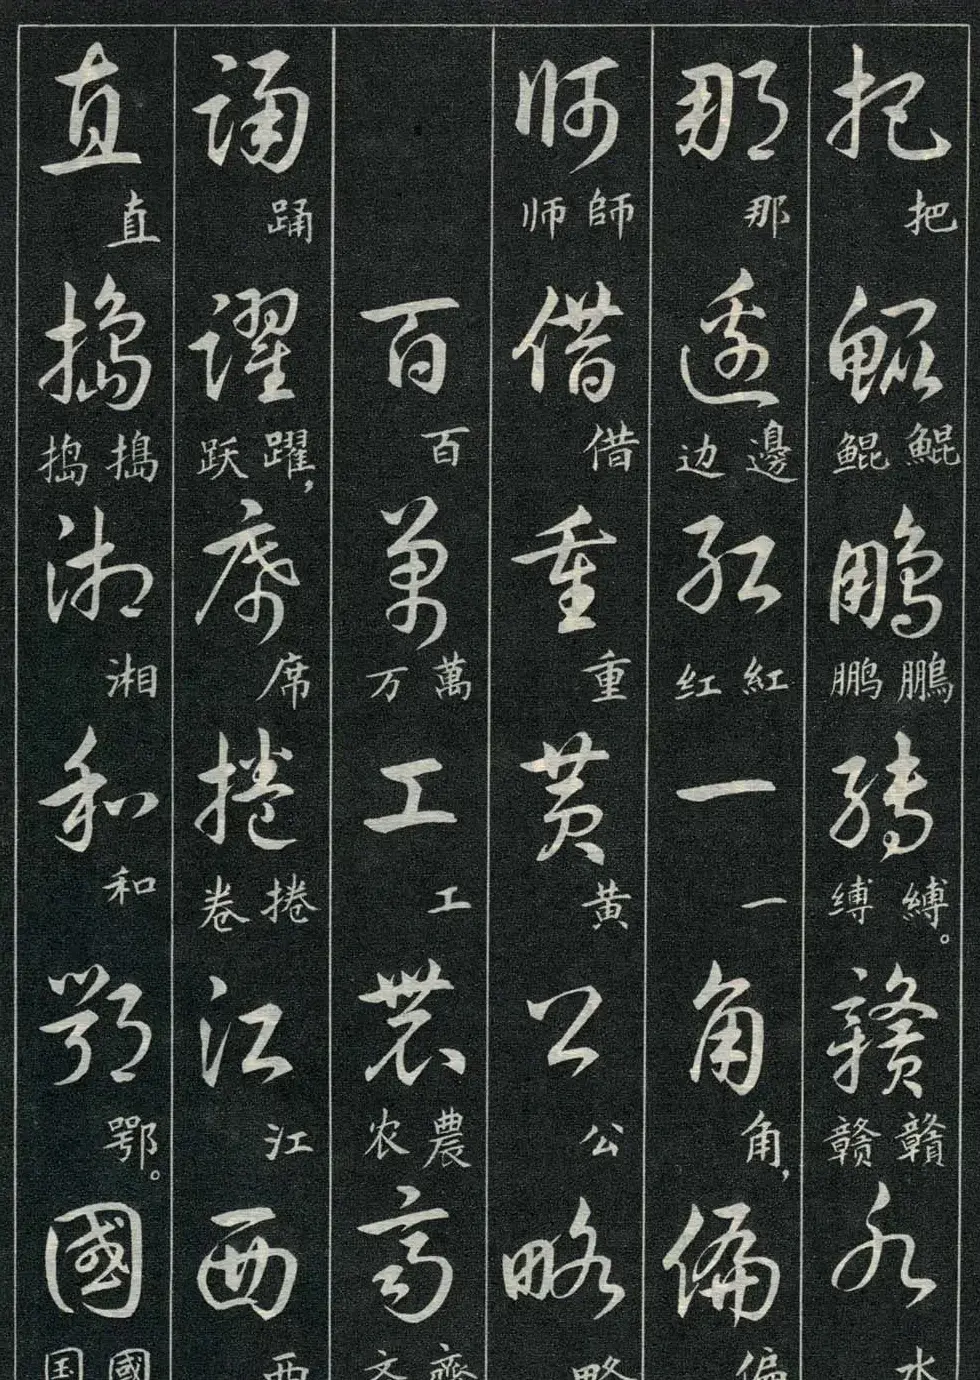 把 把 鯤 鯤 鲲 鵬 鵬 鹏 縛 縛 缚。 贛 贛 赣 水 水
那 那 邊 邊 边 紅 紅 红 一 一 角 角， 偏 偏
師 師 师 借 借 重 重 黄 黄 公 公 略 略
百 百 萬 萬 万 工 工 農 農 农 齊 齊 齐
踊 踊 躍 躍 跃， 席 席 捲 捲 卷 江 江 西 西
直 直 搗 搗 捣 湘 湘 和 和 鄂 鄂。 國 國 国